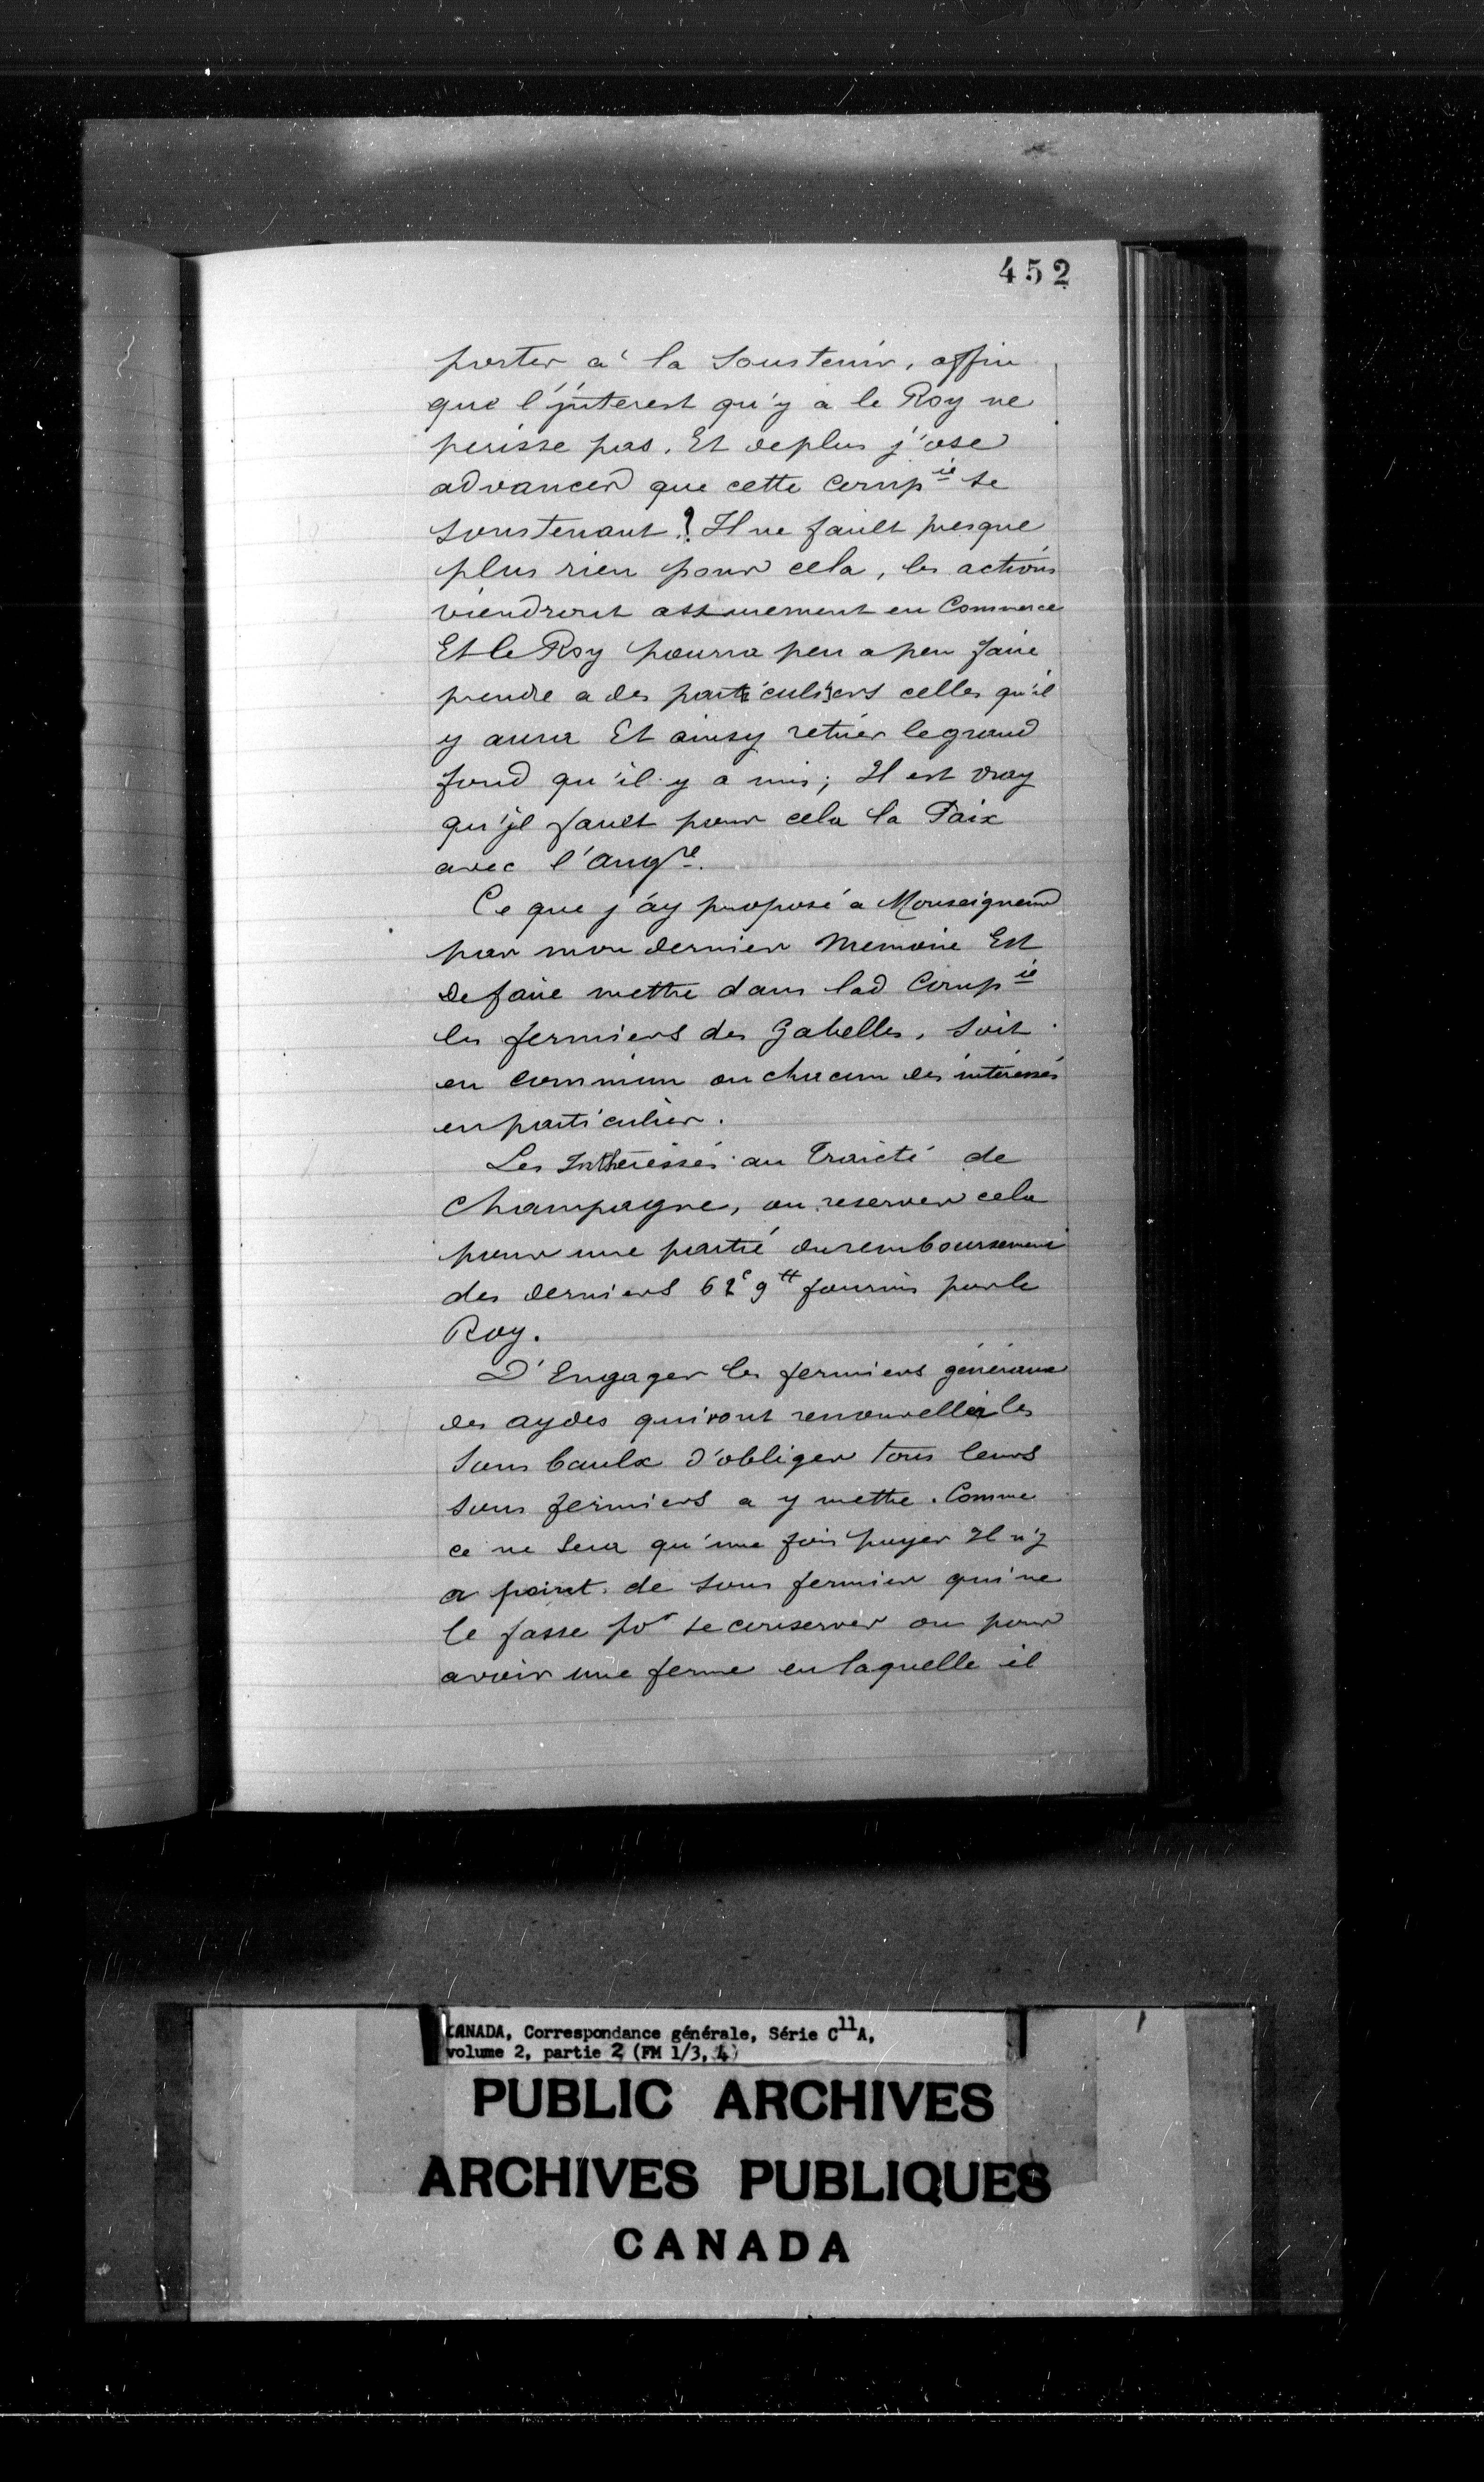 452
porter a' la Soustenir, affin
que l'jnterest qu'y a le Roy ne
perisse pas. Et deplus j'ose
advancer que cette Comp ie se
soustenant ? Il ne fault presque
plus rien pour cela, les actions
viendront assurement en Commerce
Et le Roy pourra peu a peu faire
prendre a des particuliers celles qu'il
y aura Et ainsy retirer le grand
fond qu'il y a mis; Il est vray
qu'jl fault pour cela la Paix
avec l'angre.
Ce que j'ay proposé a Monseigneur
par mon dernier Memoire Est
De faire mettre dans lad Comp ie
les fermiers des Gabelles, soit
en commun ou chacun des intéressés
en particulier.
Les Inthéressés au Traicté de
Champagne, ou reserver cela
pour une partie du remboursement
des derniers fournis par le
Roy.
D'Engager les fermiers généraux
des aydes qui vont renouveller les
sous baulx d'obliger tous leurs
sous fermiers a y mettre. Comme
ce ne sera qu'une fois payer Il n'y
a point de sous fermier qui ne
le fasse por se conserver ou pour
avoir une ferme en laquelle il
CANADA, Correspondance générale, Série C11A,
volume 2, partie 2 (FM 1/3, 4)
PUBLIC ARCHIVES
ARCHIVES PUBLIQUES
CANADA